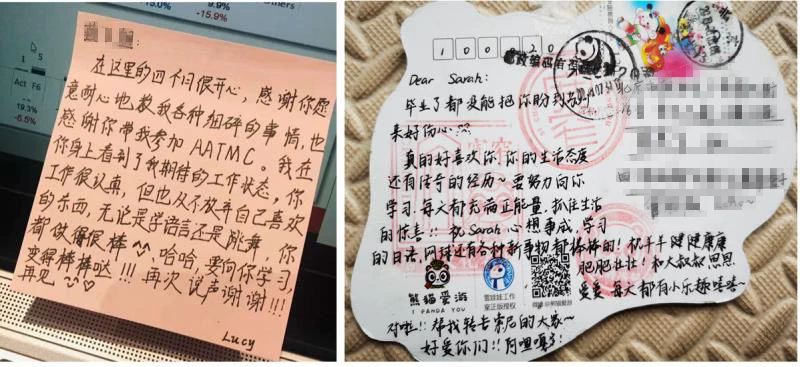 Others
15.0%
9.9%
-15.9%
1 5
Act F6
19.3%
-6.5%
在这里的四个月很开心，感谢你愿
意耐心地教我各种细碎的事情，也
感谢你带我参加 AATMC。我在
你身上看到了我期待的工作状态，你
工作很认真，但也从不放弃自己喜欢
的东西，无论是学语言还是跳舞，你
都做得很棒^^，哈哈，要向你学习，
变得棒棒哒!!! 再次说声谢谢!!!
再见
Lucy
1 0 0 0 2 0
Dear Sarah:
毕业了都没能把你盼到
来好伤心
真的好喜欢你！你的生活态度
还有传奇的经历~要努力向你
学习，每天都充满正能量，抓住生活
的惊喜!! 祝Sarah心想事成，学习
的日语、网球还有各种新事物都棒棒的！祝羊羊健健康康
肥肥壮壮！和大叔叔恩恩
爱爱 每天都有小乐趣嘻嘻~
熊猫爱游
I PANDA YOU
雪娃娃工作
室正版授权
微博@熊猫爱游
对啦!! 帮我转告索尼的大家~
好爱你们!!